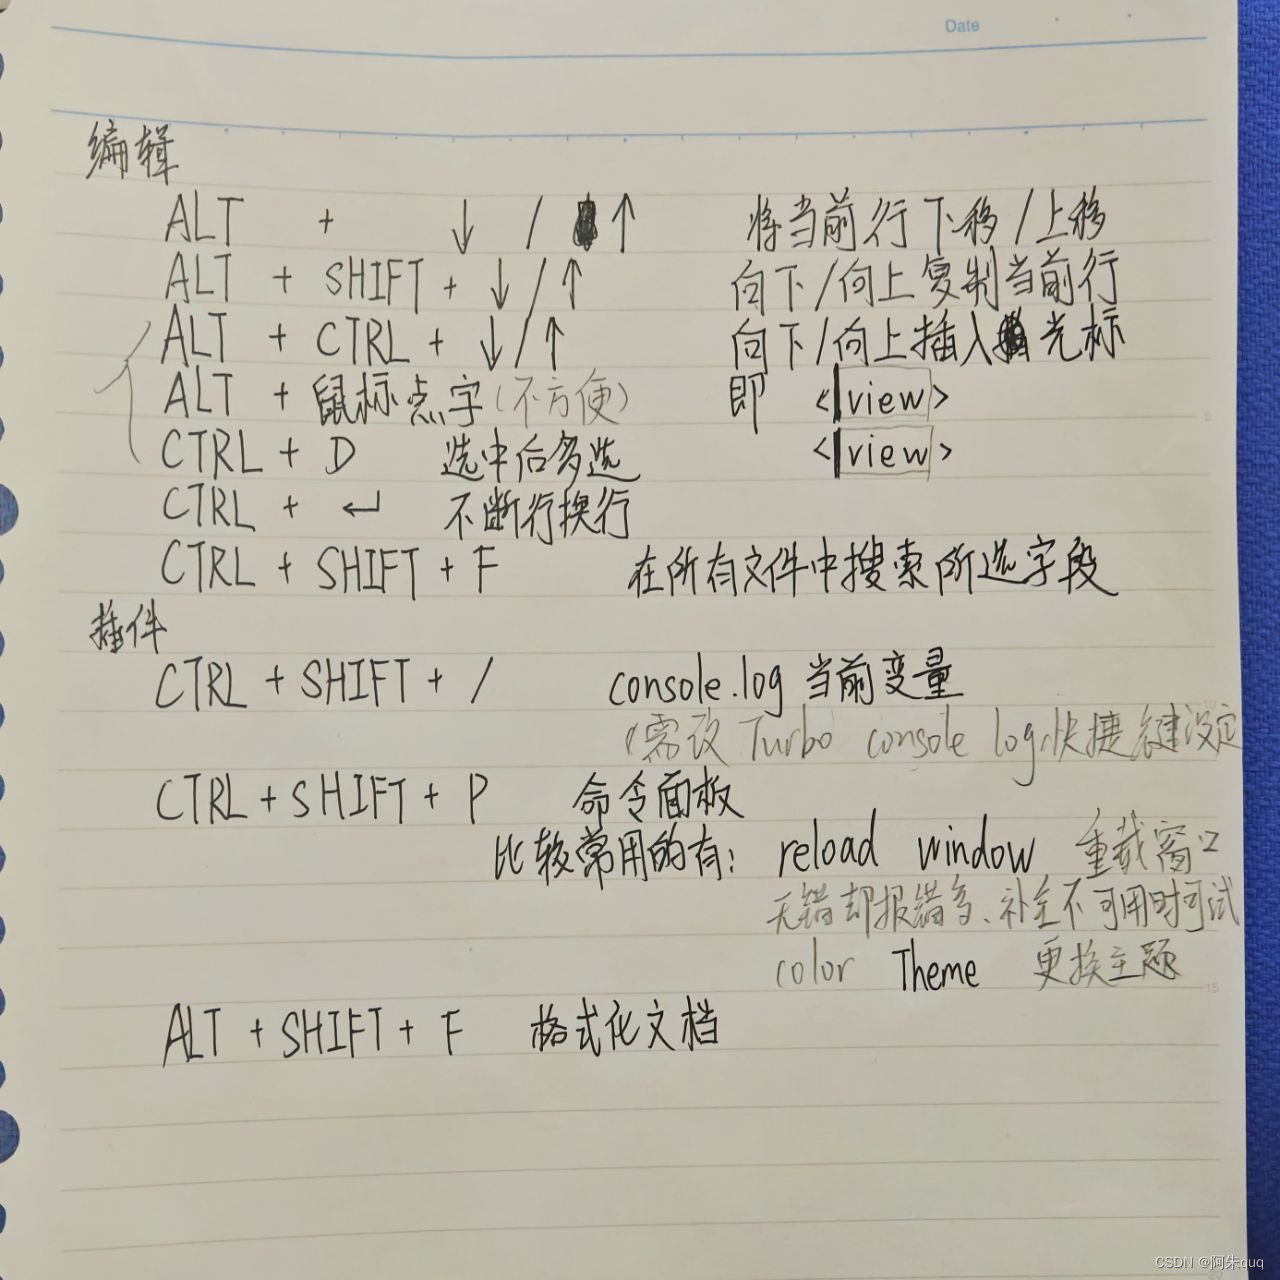 Date
编辑
ALT + ↓ / ↑ 将当前行下移/上移
ALT + SHIFT + ↓/↑ 向下/向上复制当前行
ALT + CTRL + ↓/↑ 向下/向上插入光标
ALT + 鼠标点字(不方便) 即 <|view>
CTRL + D 选中后多选 <|view>
CTRL + ↵ 不断行换行
CTRL + SHIFT + F 在所有文件中搜索所选字段
插件
CTRL + SHIFT + / console.log 当前变量
(需改 Turbo console log快捷键设定
CTRL + SHIFT + P 命令面板
比较常用的有: reload window 重载窗口
无错却报错多、补全不可用时可试
color Theme 更换主题
ALT + SHIFT + F 格式化文档
5
15
CSDN @阿朱quq